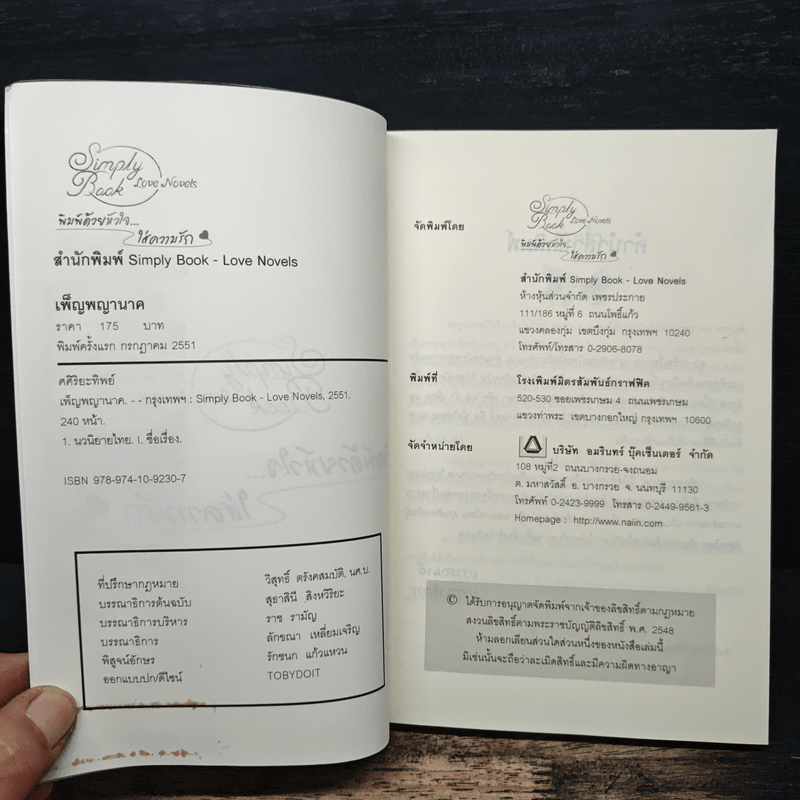 Simply
Book Love Novels
พิมพ์ด้วยหัวใจ...
ใส่ความรัก
สำนักพิมพ์ Simply Book - Love Novels
เพ็ญพญานาค
ราคา 175 บาท
พิมพ์ครั้งแรก กรกฎาคม 2551
ศศิริยะทิพย์
เพ็ญพญานาค. - - กรุงเทพฯ : Simply Book - Love Novels, 2551.
240 หน้า.
1. นวนิยายไทย. I. ชื่อเรื่อง.
ISBN 978-974-10-9230-7
ที่ปรึกษากฎหมาย วิสุทธิ์ ตรังคสมบัติ, นศ.บ.
บรรณาธิการต้นฉบับ สุธาสินี สิงหวิริยะ
บรรณาธิการบริหาร ราช รามัญ
บรรณาธิการ ลักขณา เหลี่ยมเจริญ
พิสูจน์อักษร รักชนก แก้วแหวน
ออกแบบปก/ดีไซน์ TOBYDOIT
จัดพิมพ์โดย
Simply
Book Love Novels
พิมพ์ด้วยหัวใจ...
ใส่ความรัก
สำนักพิมพ์ Simply Book - Love Novels
ห้างหุ้นส่วนจำกัด เพชรประกาย
111/186 หมู่ที่ 6 ถนนโพธิ์แก้ว
แขวงคลองกุ่ม เขตบึงกุ่ม กรุงเทพฯ 10240
โทรศัพท์/โทรสาร 0-2906-8078
พิมพ์ที่ โรงพิมพ์มิตรสัมพันธ์กราฟฟิค
520-530 ซอยเพชรเกษม 4 ถนนเพชรเกษม
แขวงท่าพระ เขตบางกอกใหญ่ กรุงเทพฯ 10600
จัดจำหน่ายโดย บริษัท อมรินทร์ บุ๊คเซ็นเตอร์ จำกัด
108 หมู่ที่2 ถนนบางกรวย-จงถนอม
ต. มหาสวัสดิ์ อ. บางกรวย จ. นนทบุรี 11130
โทรศัพท์ 0-2423-9999 โทรสาร 0-2449-9561-3
Homepage : http://www.naiin.com
© ได้รับการอนุญาตจัดพิมพ์จากเจ้าของลิขสิทธิ์ตามกฎหมาย
สงวนลิขสิทธิ์ตามพระราชบัญญัติลิขสิทธิ์ พ.ศ. 2548
ห้ามลอกเลียนส่วนใดส่วนหนึ่งของหนังสือเล่มนี้
มิเช่นนั้นจะถือว่าละเมิดสิทธิ์และมีความผิดทางอาญา